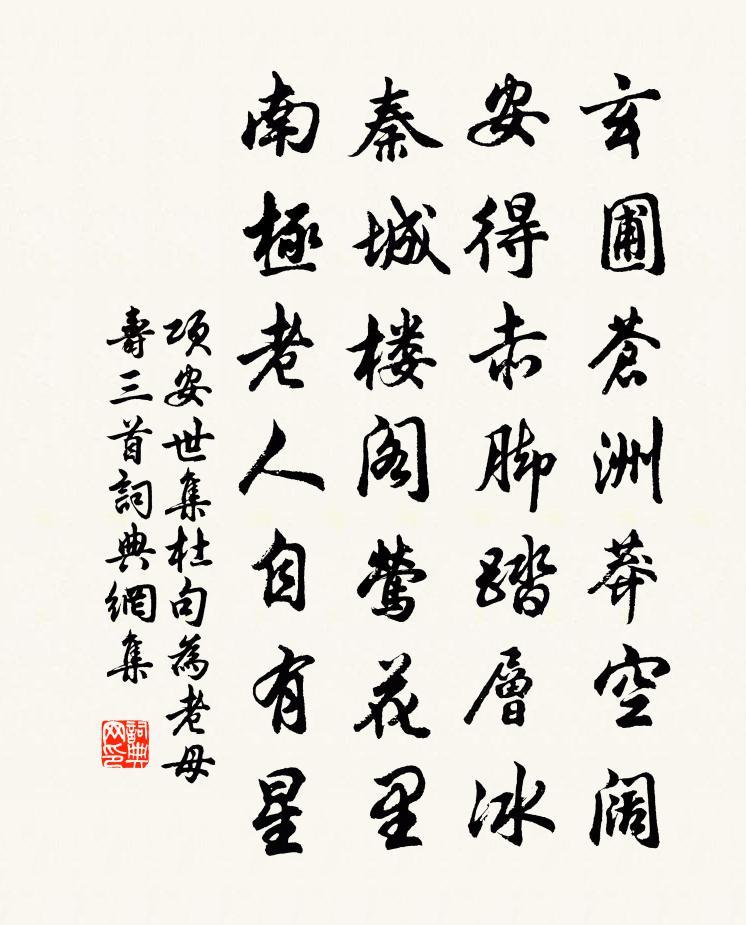 玄圃蒼洲莽空阔
安得赤脚踏層冰
秦城楼阁鶯花里
南極老人自有星
项安世集杜句為老母
壽三首詞典網集
詞典网印